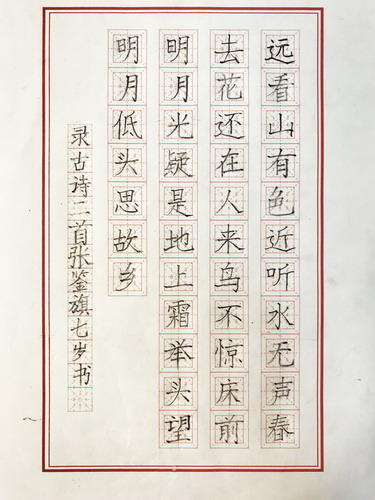 远看山有色近听水无声春
去花还在人来鸟不惊床前
明月光疑是地上霜举头望
明月低头思故乡
录古诗二首张鉴旗七岁书